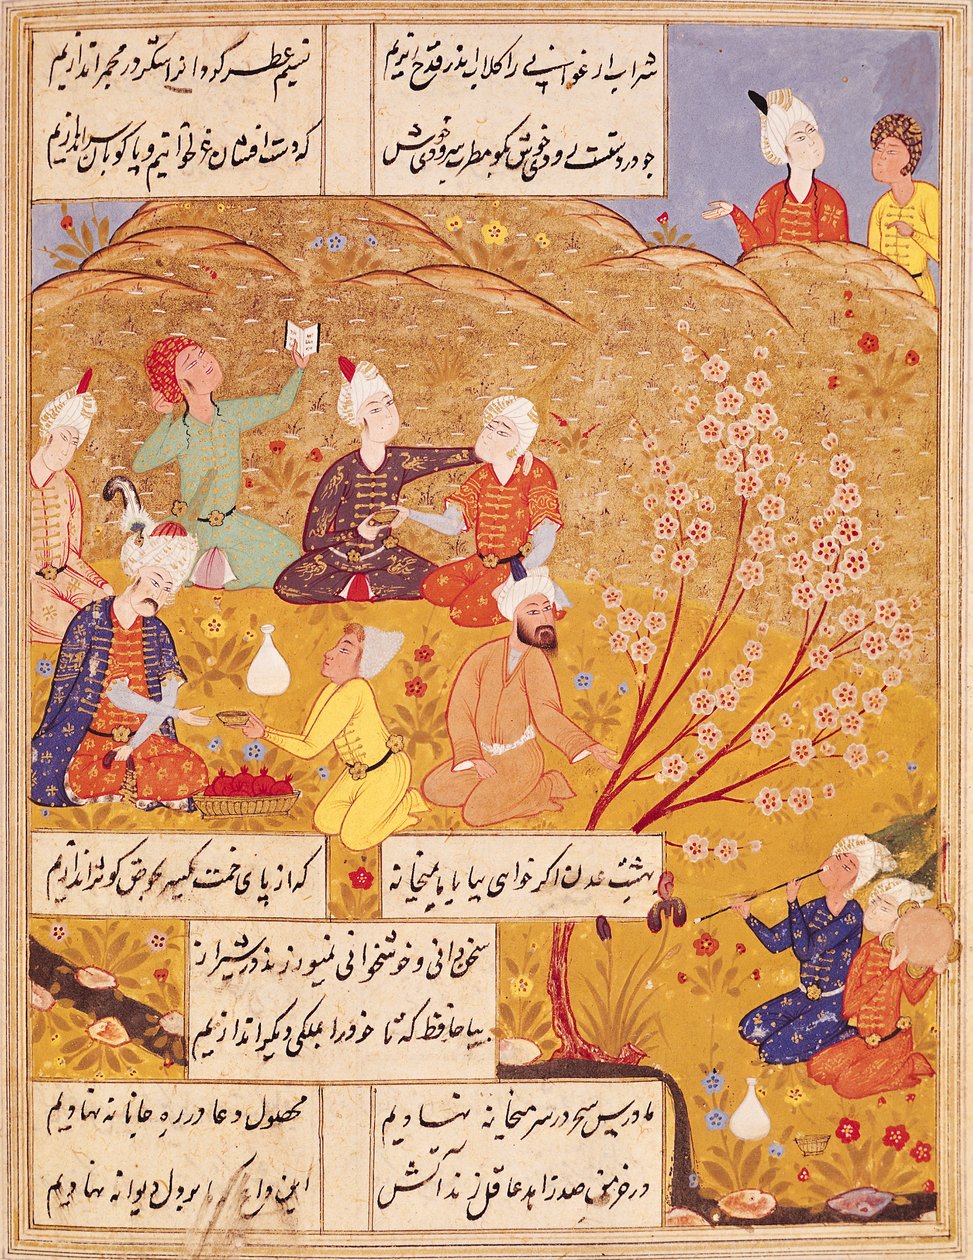 شراب ارغوانی را گلاب اندر قدح ریزیم
نسیم عطر گردان را شکر در مجمر اندازیم
چو در دستست رودی خوش بگو مطرب سرودی خوش
که دست افشان غزل خوانیم و پا کوبان سر اندازیم
بهشت عدن اگر خواهی بیا با ما بمیخانه
که از پای خمت یکسر بحوض کوثر اندازیم
سخن دانی و خوشخوانی نمیورزند در شیراز
بیا حافظ که تا خود را بملکی دیگر اندازیم
ما درس سحر در سر میخانه نهادیم
محصول دعا در ره جانانه نهادیم
در خرمن صد زاهد عاقل زند آتش
این داغ که ما بر دل دیوانه نهادیم